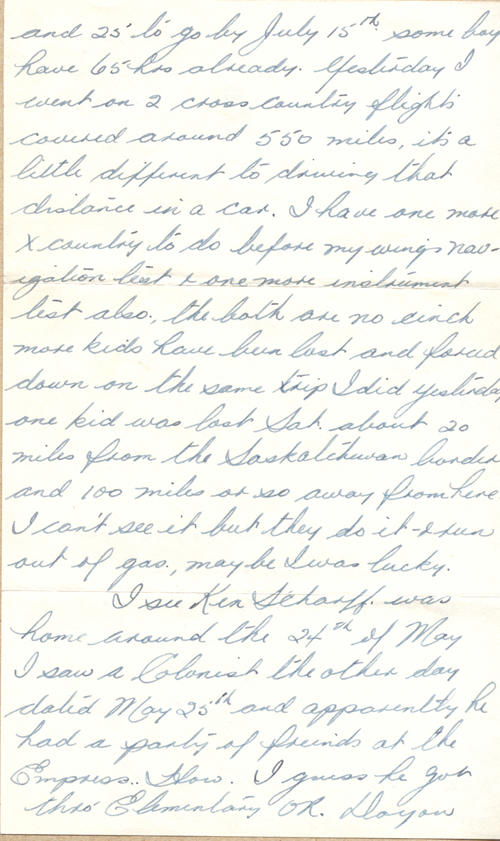 and 25 to go by July 15th some boys
have 65 hrs already. Yesterday I
went on 2 cross country flights
covered around 550 miles, its a
little different to driving that
distance in a car. I have one more
X country to do before my wings nav-
igation test & one more instrument
test also., the both are no cinch
more kids have been lost and forced
down on the same trip I did yesterday
one kid was lost Sat. about 20
miles from the Saskatchewan border
and 100 miles or so away from here
I can't see it but they do it & run
out of gas., maybe I was lucky.
I see Ken Scharff. was
home around the 24th of May
I saw a Colonist the other day
dated May 25th and apparently he
had a party of freinds at the
Empress.. How. I guess he got
thro' Elementary OK. Do you